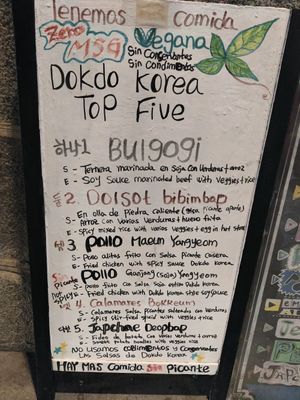 Tenemos comida
Zero MSG
Vegana
Sin Conservantes
Sin Condimentos
Dokdo Korea
Top Five
1 Bulgogi
S - Ternera marinada en Soja con Verduras + arroz
E - Soy Sauce marinated beef with veggies + rice
2. Dolsot bibimbap
En olla de Piedra caliente
S - Arroz con varios Verduras + huevo frito
E - Spicy mixed rice with various veggies + egg in hot stone
3 Pollo Maeun Yangyeom
S - Pollo alitas frito con Salsa Picante Casera
E - Fried chicken with spicy Sauce Dokdo Korea
Sin picante
Pollo Ganjang (soja) Yangyeom
S - Pollo frito con Salsa de soja estilo Dokdo Korea
Not spicy
E - Fried chicken with Dokdo Korea style soysauce
4. Calamares Bokkeum
S - Calamares Picantes salteado con Verduras
E - Spicy stir-fried squid with veggies + rice
5. Japchae Deopbap
S - Fideo de batata con varios Verduras + arroz
E - Sweet potato noodles with veggies + rice
No usamos condimentos ni Conservantes
Las Salsas de Dokdo Korea
Hay mas Comida Sin Picante